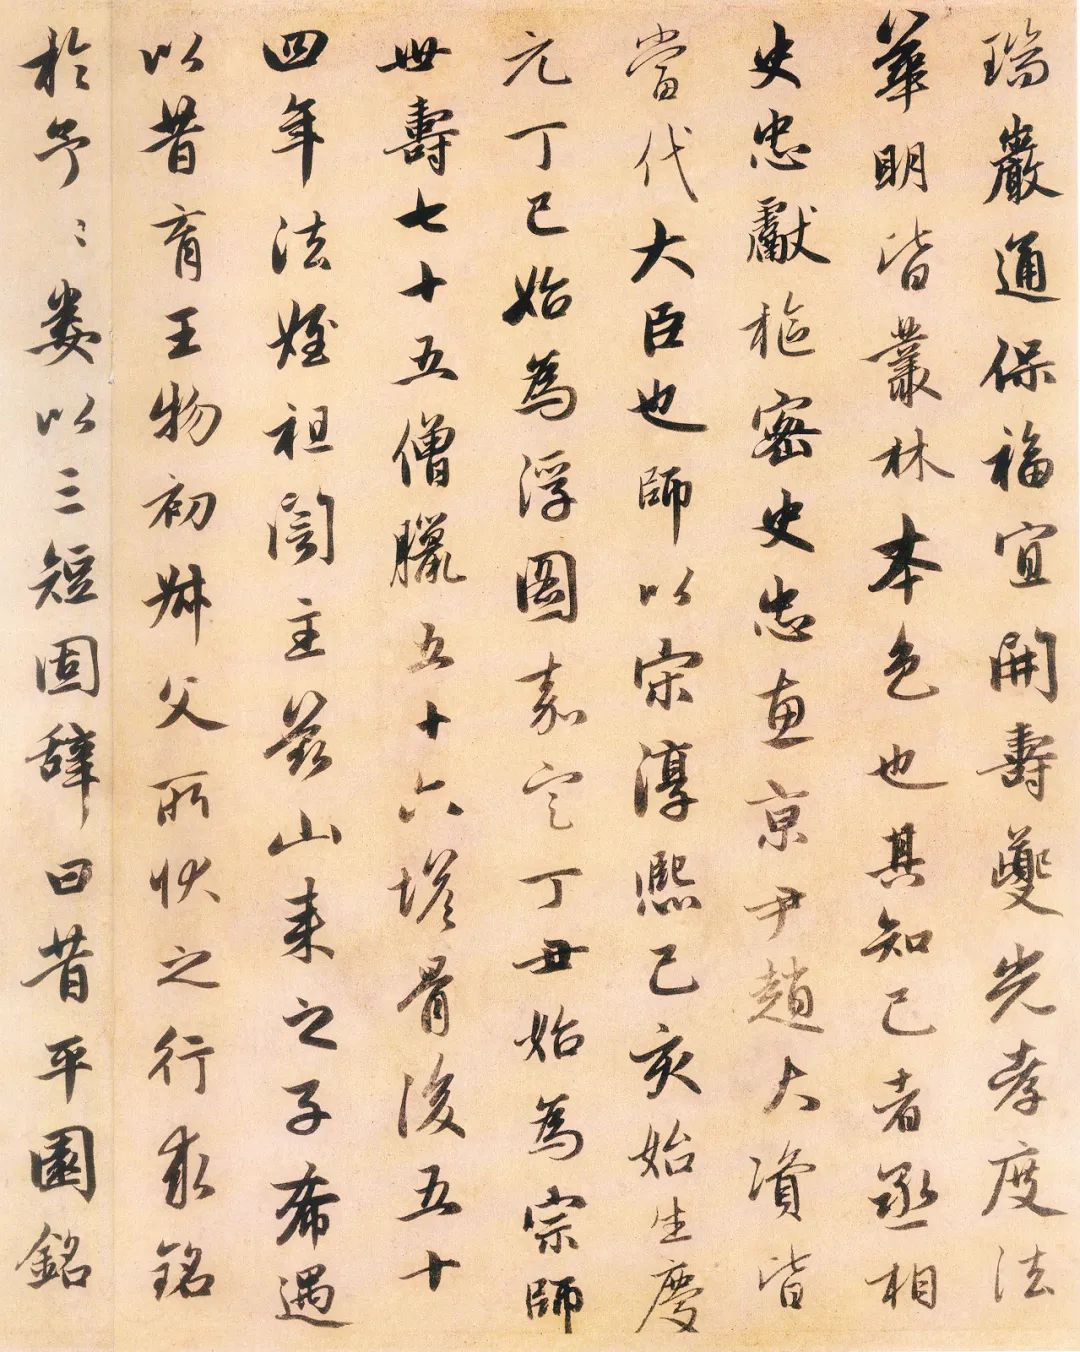 瑞巖通保福宜開壽夔光孝度法
華明皆叢林本色也其知己者丞相
史忠獻樞密史忠惠京尹趙大資皆
當代大臣也師以宋淳熙己亥始生慶
元丁巳始為浮圖嘉定丁丑始為宗師
世壽七十五僧臘五十六塔骨後五十
四年法姪祖誾主茲山来之子希遇
以昔育王物初叔父所狀之行求銘
於予〻婁以三短固辞曰昔平園銘